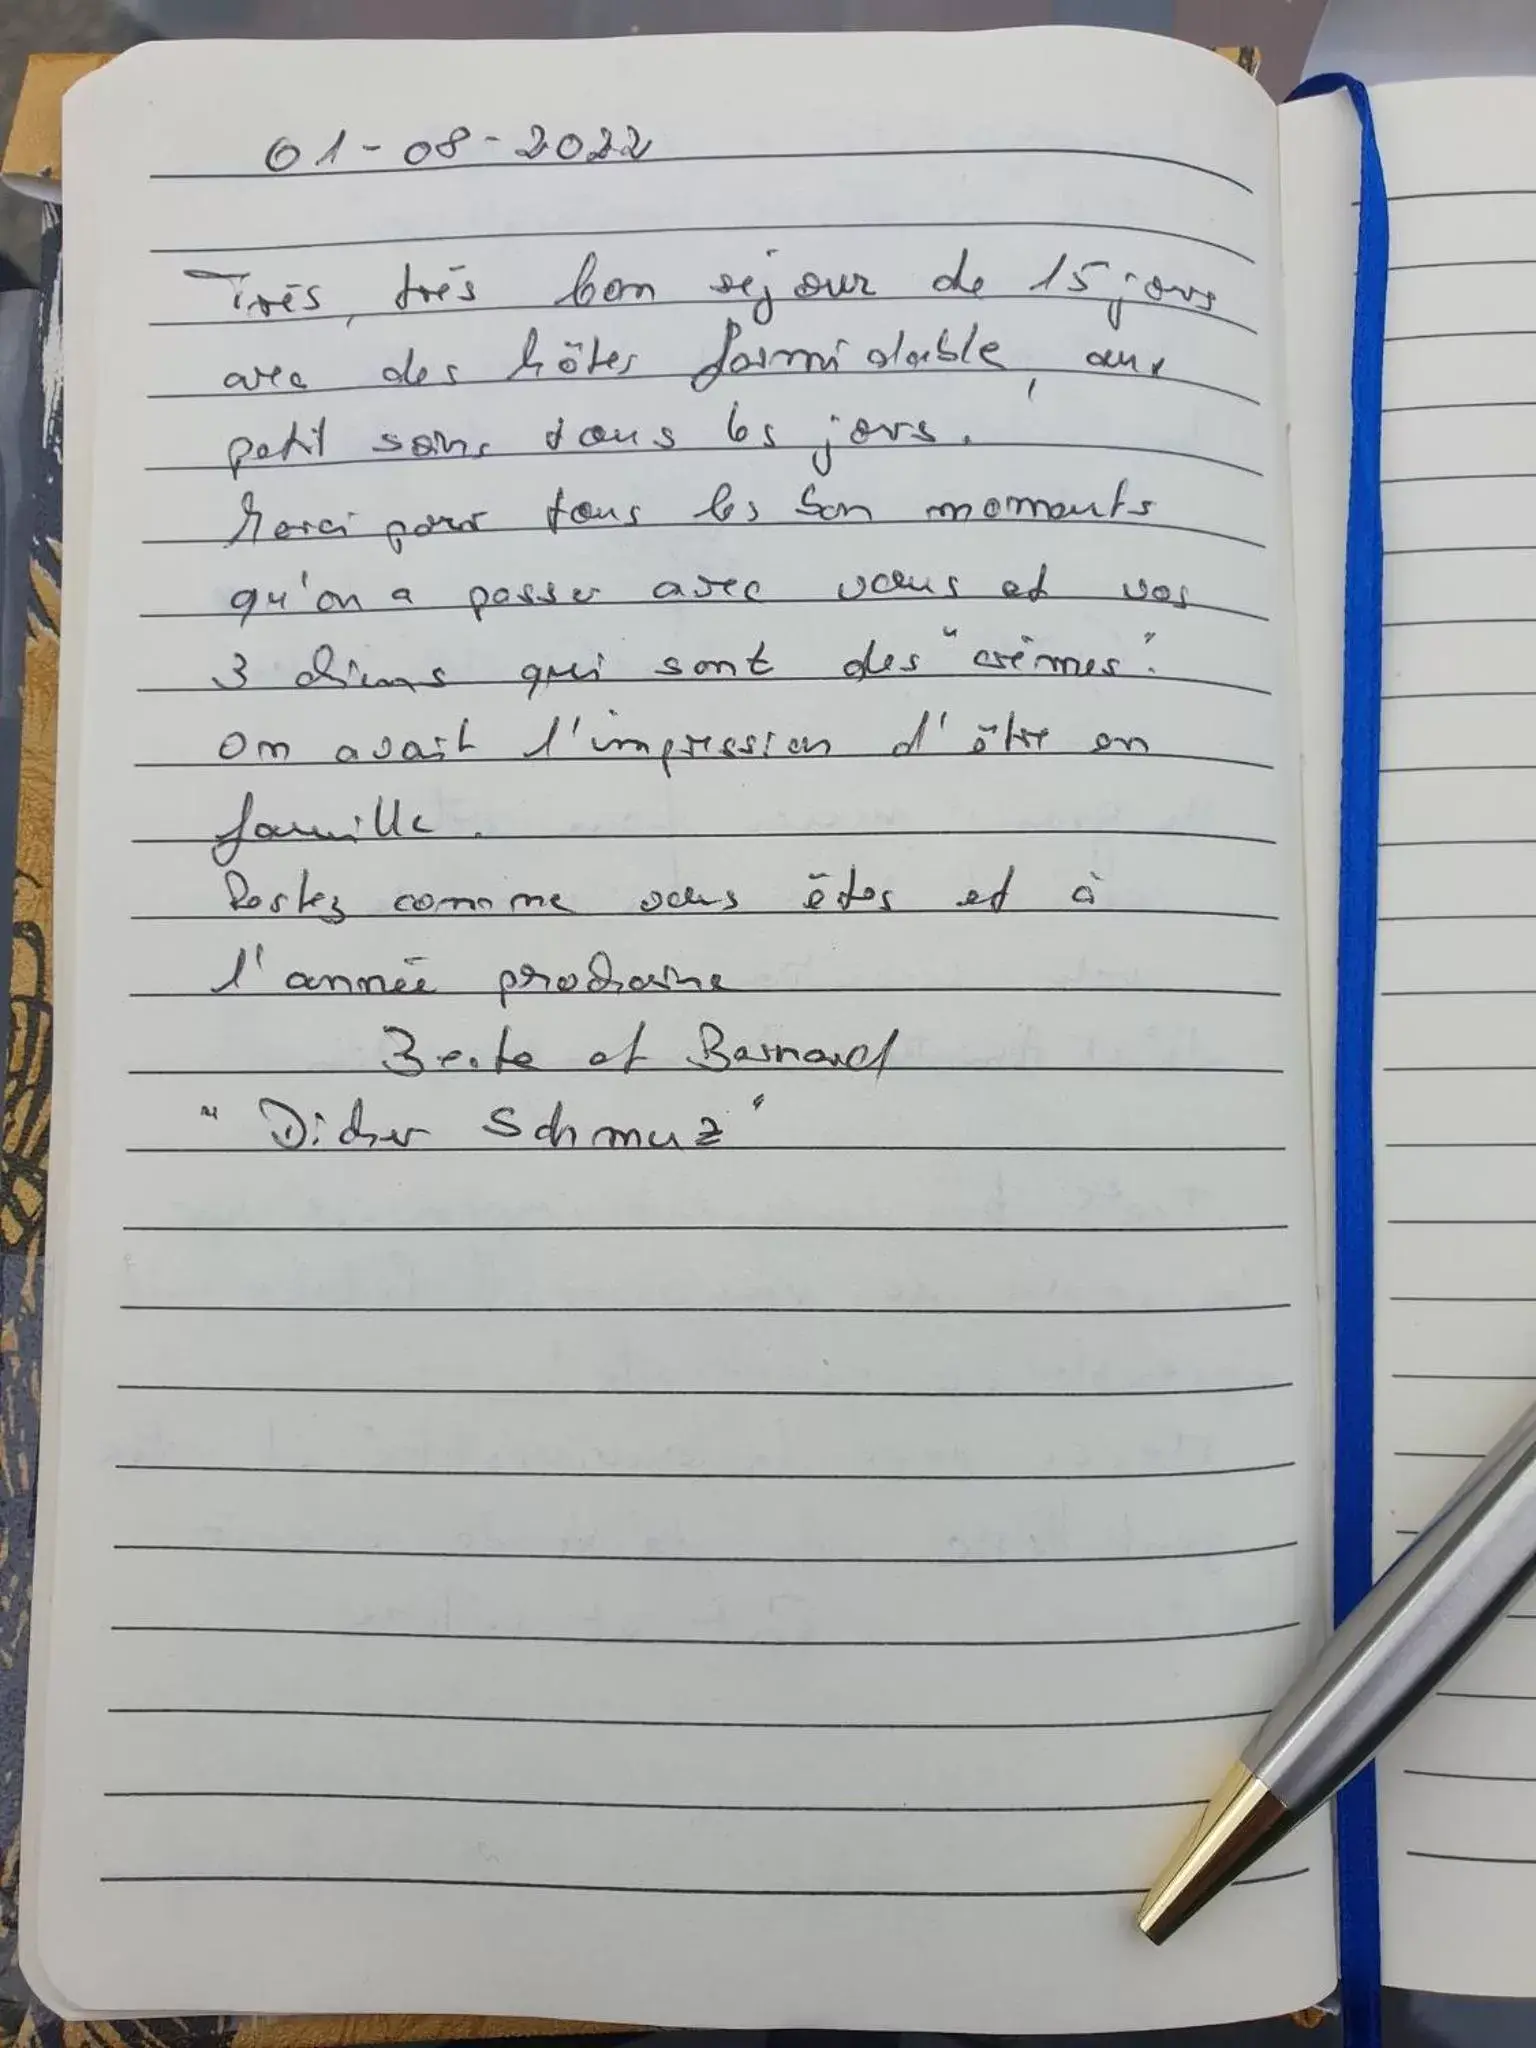 01-08-2022
Très, très bon séjour de 15 jors
avec des hôtes formidable, aux
petit soins tous les jors.
Merci pour tous les bon moments
qu'on a passer avec vous et vos
3 chiens qui sont des "crèmes".
On avait l'impression d'être en
famille.
Restez comme vous êtes et à
l'année prochaine
Beate et Bernard
"Didier Schmuz"